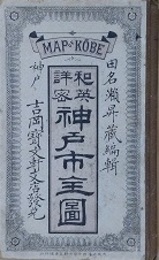 MAP OF KOBE
田名瀬昇藏編輯
和英
詳密
神戸市全圖
神戸
吉岡寳文軒支店發兌